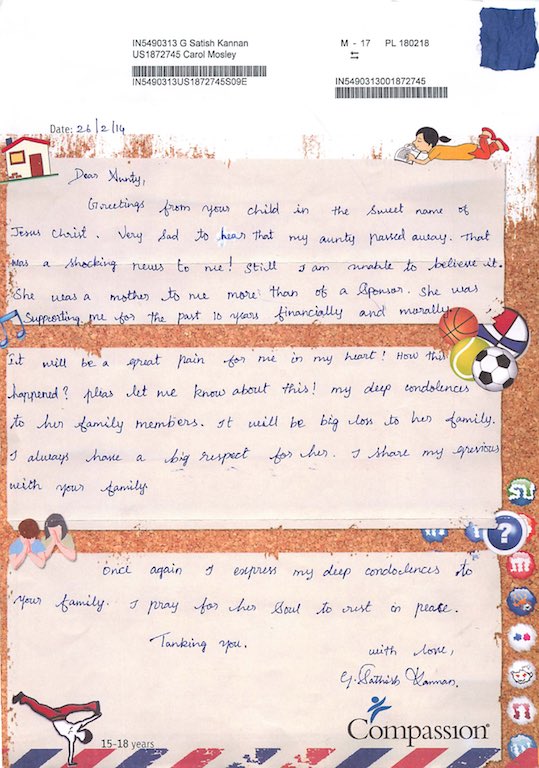 IN5490313 G Satish Kannan
US1872745 Carol Mosley
IN5490313US1872745S09E
M - 17 PL 180218
IN5490313001872745
Date: 26/2/14
Dear Aunty,
Greetings from your child in the sweet name of
Jesus Christ. Very sad to hear that my aunty passed away. That
was a shocking news to me! Still I am unable to believe it.
She was a mother to me more than of a Sponsor. She was
Supporting me for the past 10 years financially and morally
It will be a great pain for me in my heart! How this
happened? pleas let me know about this! my deep condolences
to her family members. It will be big loss to her family.
I always have a big respect for her. I share my grevious
with your family.
Once again I express my deep condolences to
your family. I pray for her Soul to rest in peace.
Tanking you.
with love,
G. Sathish Kannan.
?
15-18 years
Compassion®